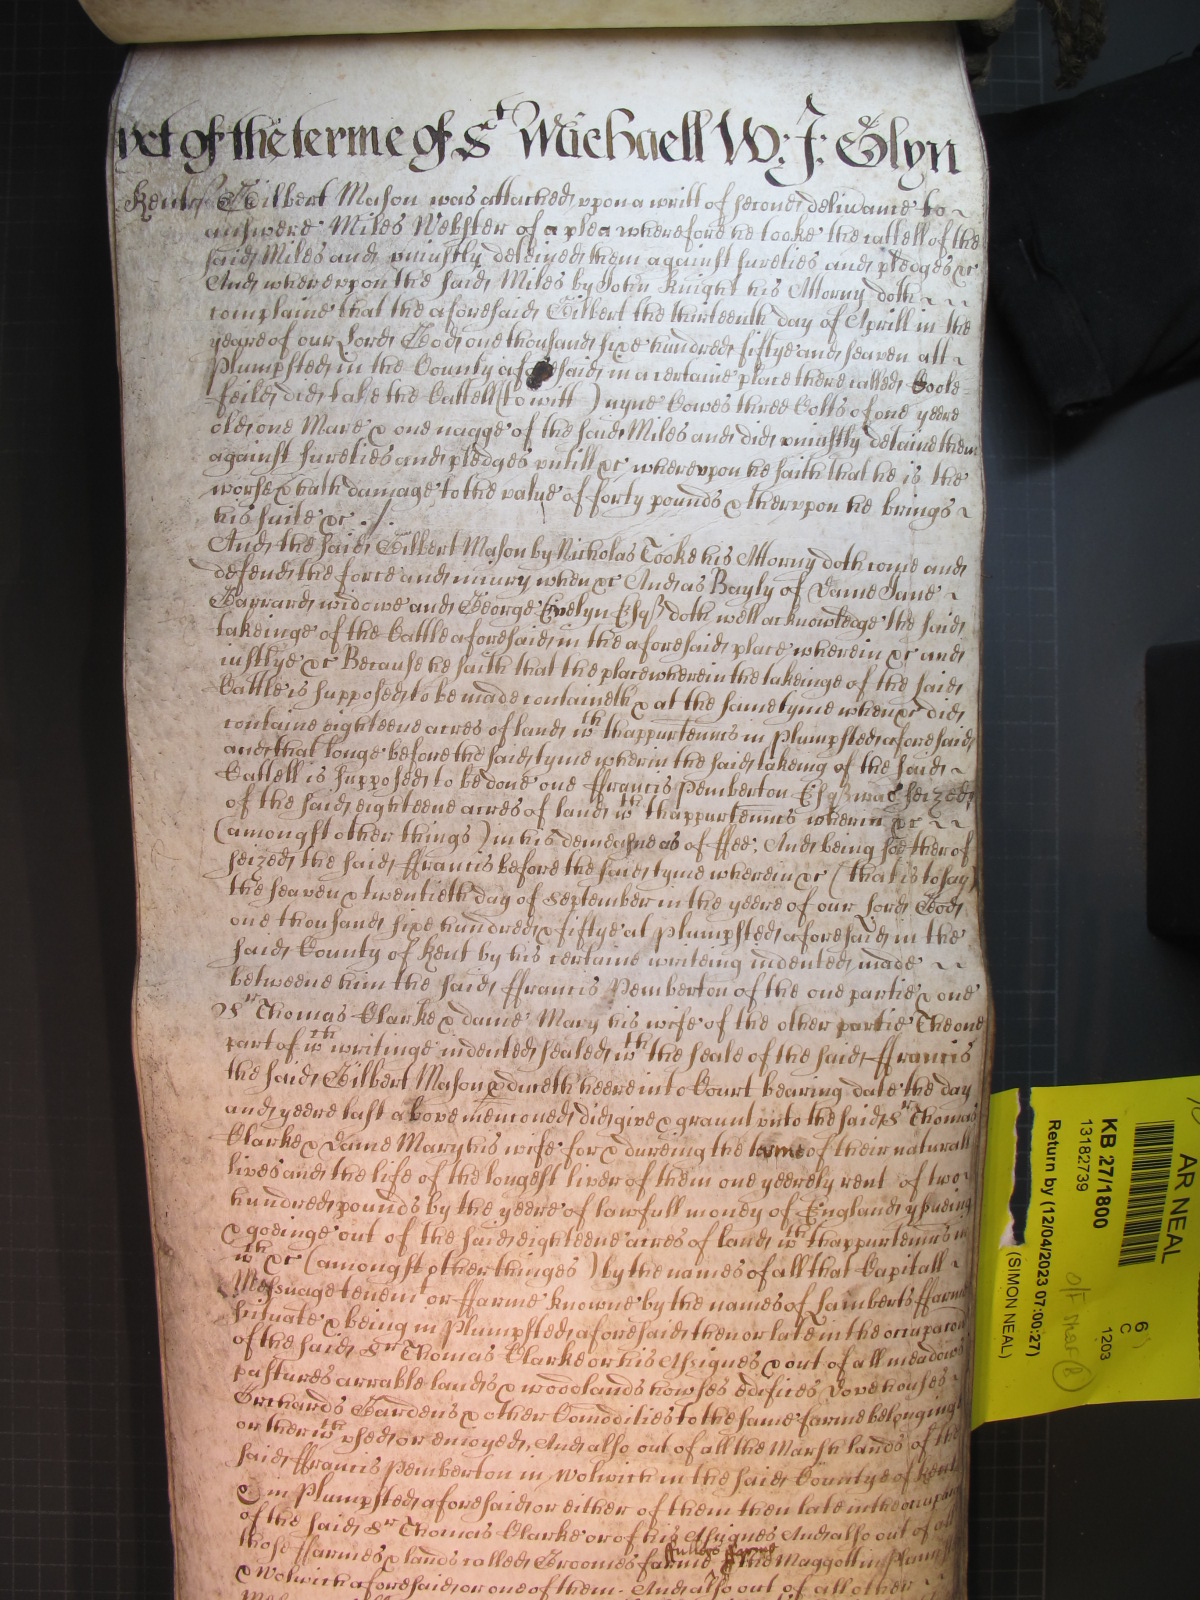 yet of the terme of St Michaell W: J: Glyn
Kent ss Gilbert Mason was attached vpon a writt of second deliuiance to
answere Miles Webster of a plea wherefore he tooke the cattell of the
said Miles and vniustly deteined them against sureties and pledges &c
And wherevpon the said Miles by John Knight his Attorny doth
complaine that the aforesaid Gilbert the thirteenth day of Aprill in the
yeare of our Lord God one thousand sixe hundred fiftye and seaven att
Plumpsted in the County aforesaid in a certaine place there called Coole-
feild did take the Cattell (to witt) nyne Cowes three Colts of one yeere
old one Mare & one nagge of the said Miles and did vniustly detaine them
against sureties and pledges vntill &c wherevpon he saith that he is the
worse & hath damage to the valye of forty pounds & thervpon he brings
his suite &c ./.
And the said Gilbert Mason by Nicholas Cooke his Attorny doth come and
defend the force and iniury when &c And as Bayly of Dame Jane
Garrard widowe and George Evelyn Esqr doth well acknowledge the said
takeinge of the Cattle aforesaid in the aforesaid place wherein &c and
iustlye &c Because he saith that the place wherein the takeinge of the said
Cattle is supposed to be made containeth & at the same tyme when &c did
containe eighteene acres of land wth thappurtenncs in Plumpsted aforesaid
and that longe before the said tyme wherin the said takeing of the said
Cattell is supposed to be done one ffrancis Pemberton Esqr was seized
of the said eighteene acres of land wth thappurtenncs wherin &c
(amongst other things) in his demeasne as of ffee. And being soe therof
seized the said ffrancis before the said tyme wherein &c (that is to say)
the seaven & twentieth day of September in the yeere of our Lord God
one thousand sixe hundred & fiftye at Plumpsted aforesaid in the
said County of Kent by his certaine writeing indented made
betweene him the said ffrancis Pemberton of the one partie & one
Sr Thomas Clarke & dame Mary his wife of the other partie The one
part of wch writinge indented sealed wth the seale of the said ffrancis
the said Gilbert Mason produceth heere into Court bearing date the day
and yeere last above mencioned did give & graunt vnto the said Sr Thomas
Clarke & Dame Mary his wife for & dureing the terme of their naturall
lives and the life of the longest liver of them one yeerely rent of two
hundred pounds by the yeere of lawfull money of England yssueing
& goeinge out of the said eighteene acres of land wth thappurtenncs in
wch &c (amongst other thinges) by the names of all that Capitall
Messuage tenemt or ffarme knowne by the names of Lamberts ffarme
situate & being in Plumpsted aforesaid then or late in the occupacon
of the said Sr Thomas Clarke or his Assignes & out of all meadows
pastures arrable lands & woodlands howses edifices Dovehouses
Orchards Gardens & other Comodities to the same farme belonging
or therwth vsed or enioyed, And also out of all the Marsh lands of the
said ffrancis Pemberton in Wolwich in the said Countye of Kent
& in Plumpsted aforesaid or either of them then late in the occupacon
of the said Sr Thomas Clarke or of his Assignes And also out of all
those ffarmes & lands called Groomes farme ffullers ffarme & the Maggott in Plumpsted
& Wolwich aforesaid or one of them. And also out of all other
AR NEAL
KB 27/1800
13182739
Return by (12/04/2023 07:00:27)
(SIMON NEAL)
6
C
1203